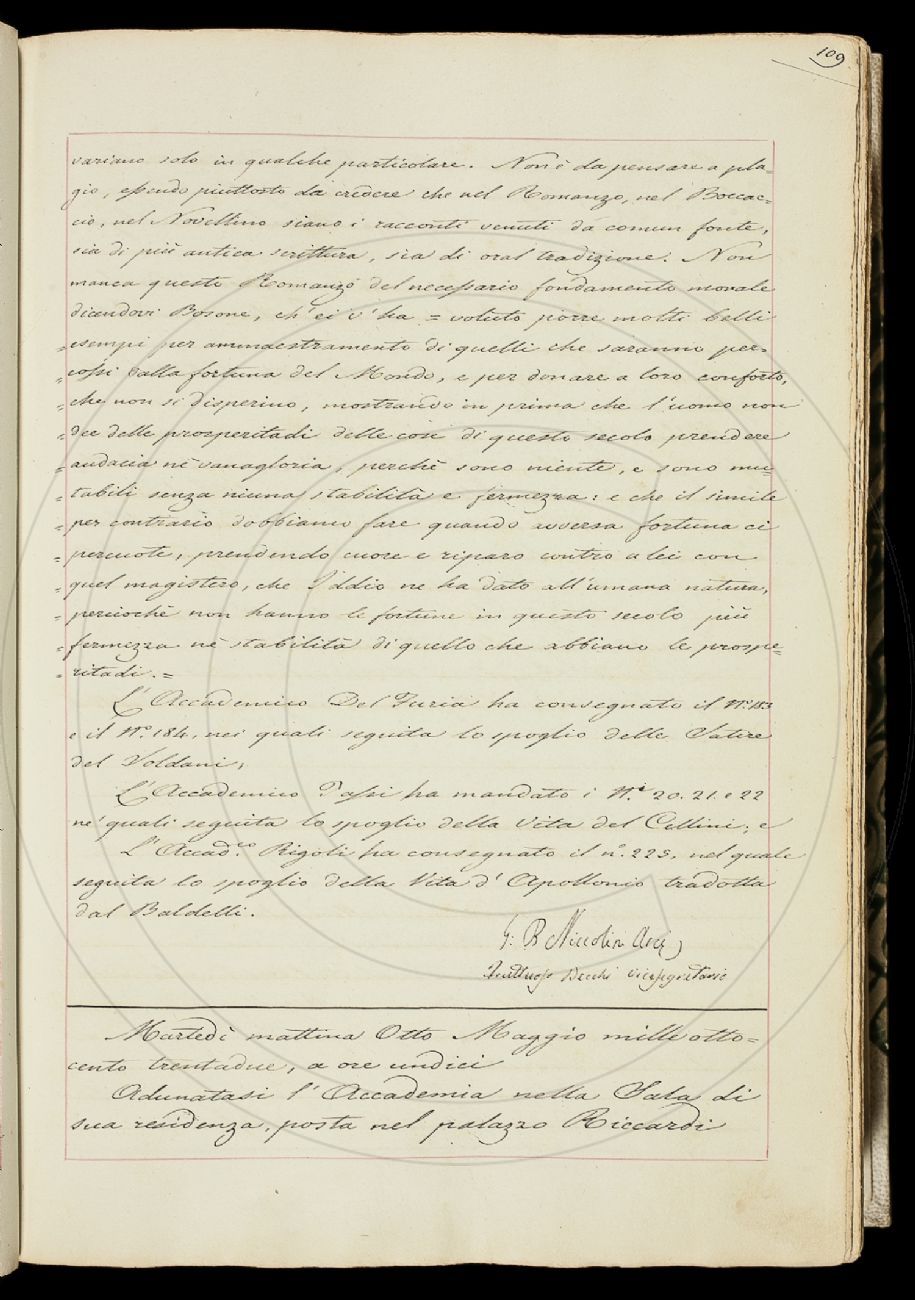 109
variano solo in qualche particolare. Non è da pensare a pla=
gio, essendo piuttosto da credere che nel Romanzo, nel Boccac=
cio, nel Novellino siano i racconti venuti da comun fonte,
sia di più antica scrittura, sia di oral tradizione. Non
manca questo Romanzo del necessario fondamento morale
dicendovi Bosone, ch'ei v'ha = voluto porre molti belli
= esempi per ammaestramento di quelli che saranno per=
= cossi dalla fortuna del Mondo, e per donare a loro conforto,
= che non si disperino, mostrando in prima che l'uomo non
= dee delle prosperitadi delle cose di questo secolo prendere
= audacia nè vanagloria, perchè sono niente, e sono mu=
= tabili senza niuna stabilità e fermezza: e che il simile
= per contrario dobbiamo fare quando avversa fortuna ci
= percuote, prendendo cuore e riparo contro a lei con
= quel magistero, che Iddio ne ha dato all'umana natura,
= perciochè non hanno le fortune in questo secolo più
= fermezza nè stabilità di quello che abbiano le prospe=
= ritadi. =
L'Accademico Del Furia ha consegnato il N.º 183
e il N.º 184, nei quali seguita lo spoglio delle Satire
del Soldani;
L'Accademico Tassi ha mandato i N.i 20. 21. e 22
ne' quali seguita lo spoglio della Vita del Cellini; e
L'Accad.co Rigoli ha consegnato il n.º 225, nel quale
seguita lo spoglio della Vita d'Apollonio tradotta
dal Baldelli.
G: B Niccolini Arci
Fruttuoso Becchi vicesegretario
Martedì mattina Otto Maggio mille otto=
cento trentadue, a ore undici
Adunatasi l'Accademia nella Sala di
sua residenza, posta nel palazzo Riccardi